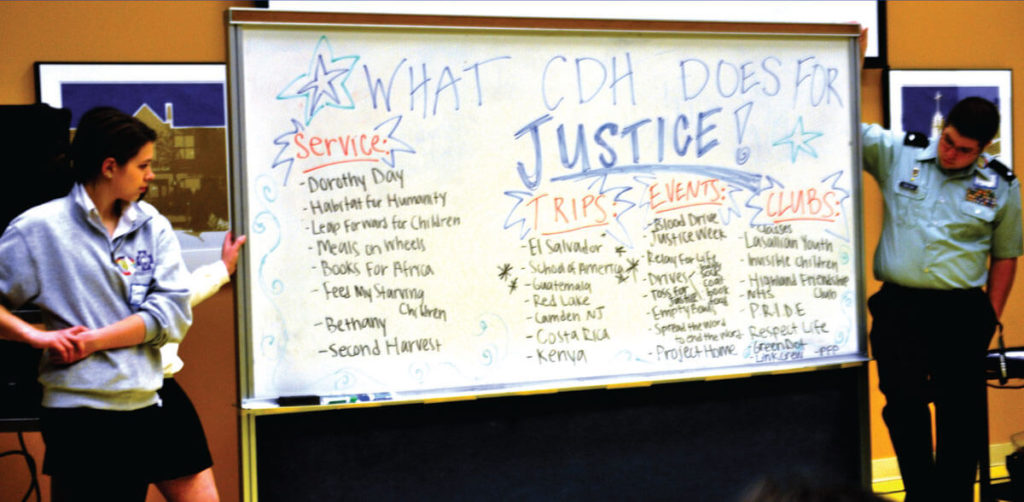 WHAT CDH DOES FOR
JUSTICE!
Service:
- Dorothy Day
- Habitat for Humanity
- Leap Forwars for Children
- Meals on Wheels
- Books For Africa
- Feed My Starving
Children
- Bethany
- Second Harvest
TRIPS:
- El Salvador
- School of America
- Guatemala
- Red Lake
- Camden NJ
- Costa Rica
- Kenya
EVENTS:
- Blood Drive
Justice Week
- Relay For Life
- Drives
coat
book
food
- Toss For
- Empty Bowls
- Spread the Word
to end the Word
- Project Home
CLUBS:
Classes
- Lasallian Youth
- Invisible Children
- Highland Friendship
Club
- NHS
- P.R.I.D.E
- Respect Life
- Green Dot
- Link Crew